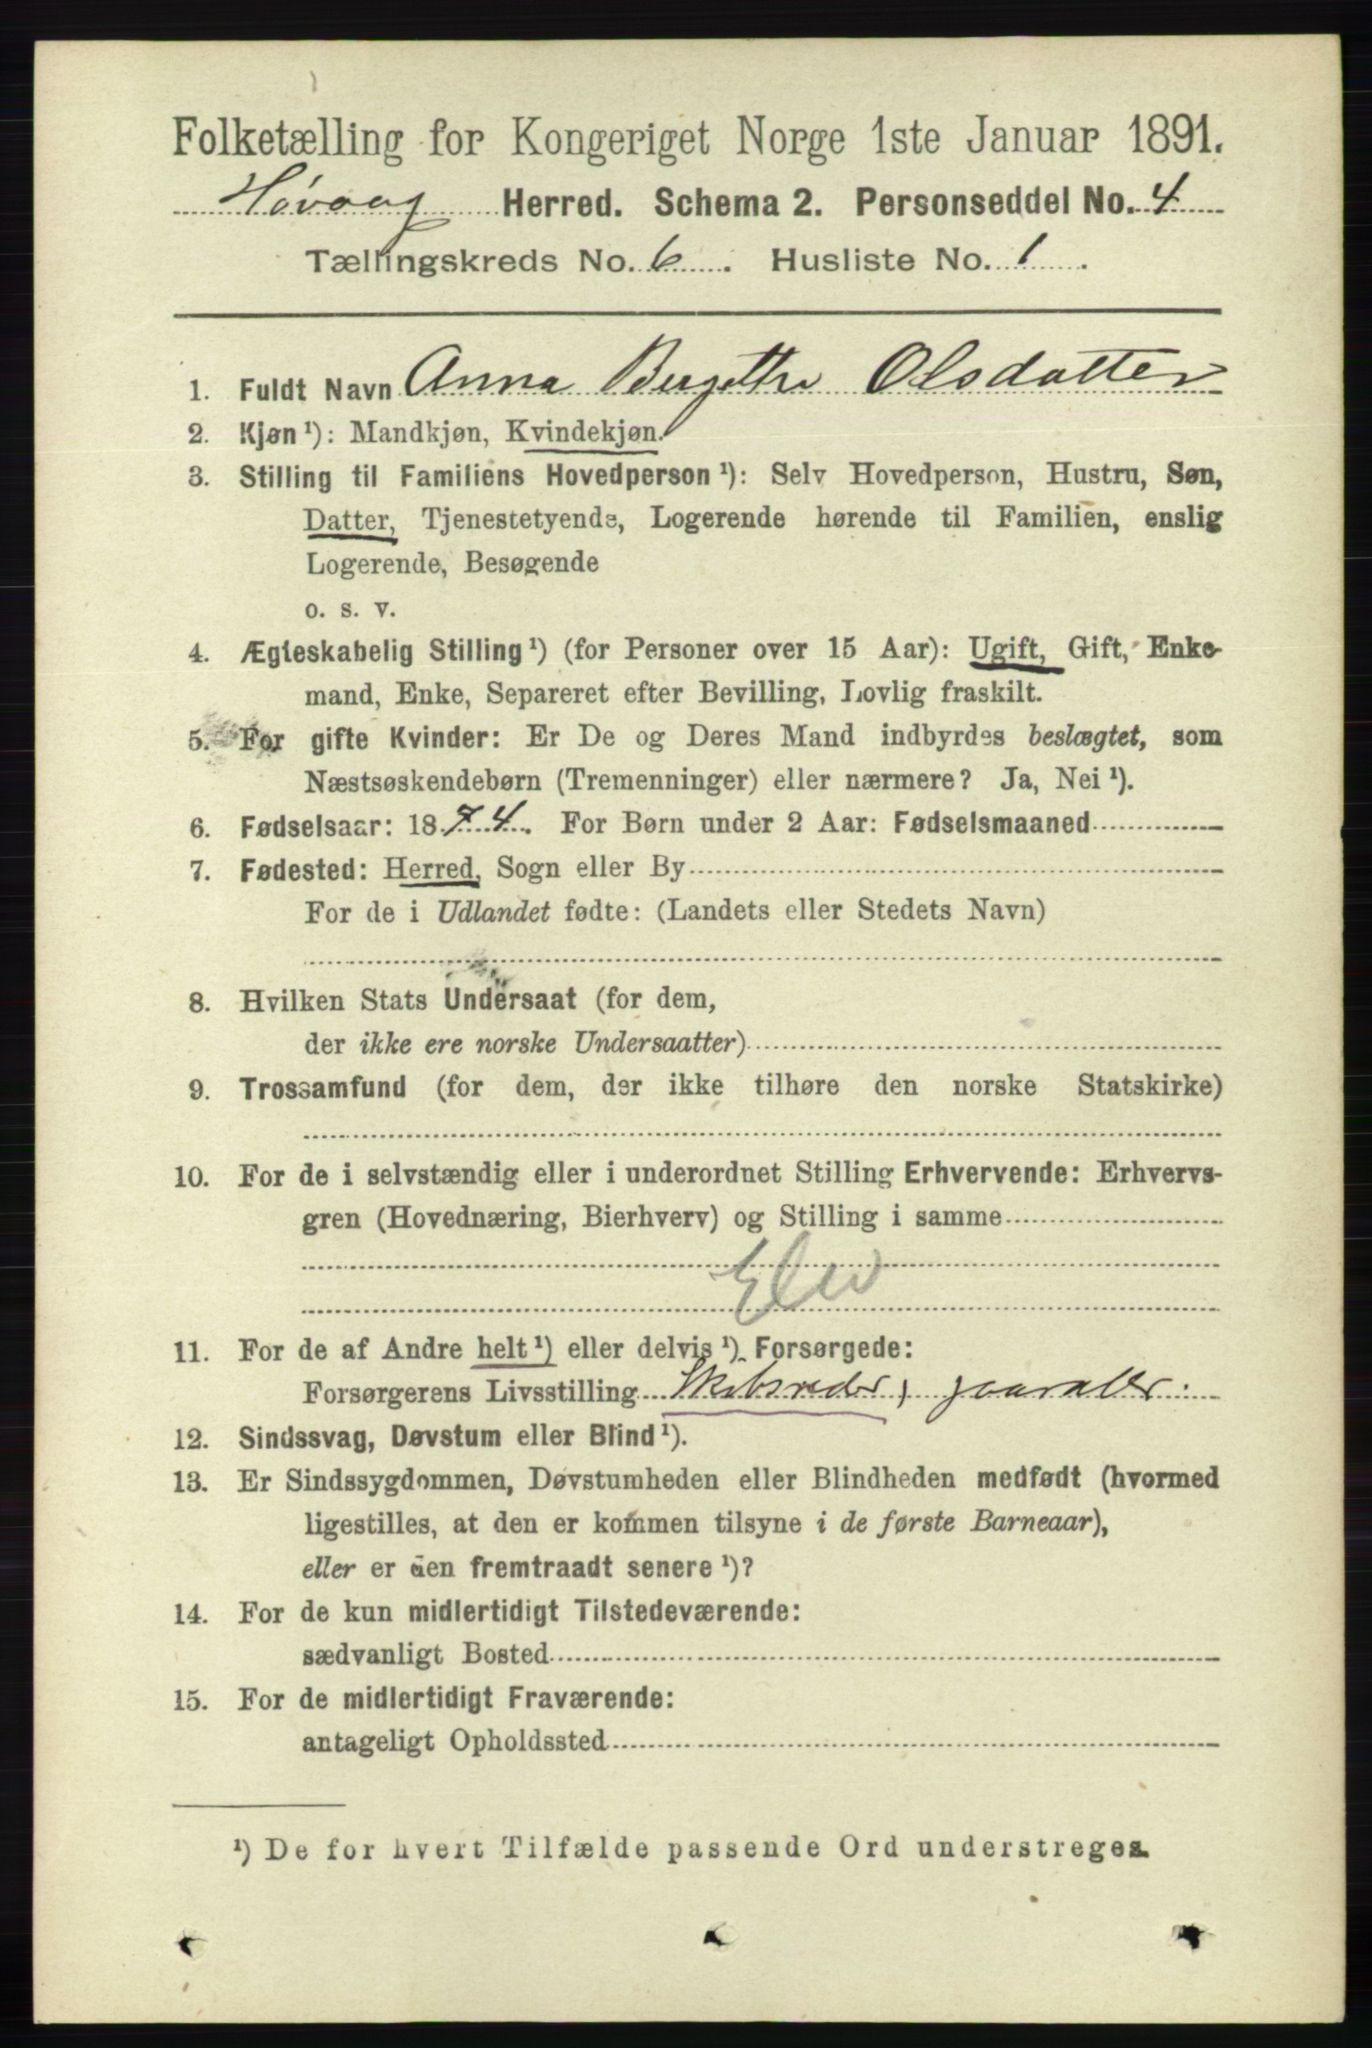 Folketælling for Kongeriget Norge 1ste Januar 1891.
Høvaag Herred. Schema 2. Personseddel No. 4
Tællingskreds No. 6. Husliste No. 1.
1. Fuldt Navn Anna Bergette Olsdatter
2. Kjøn ¹): Mandkjøn, Kvindekjøn.
3. Stilling til Familiens Hovedperson ¹): Selv Hovedperson, Hustru, Søn,
Datter, Tjenestetyende, Logerende hørende til Familien, enslig
Logerende, Besøgende
o. s. v.
4. Ægteskabelig Stilling ¹) (for Personer over 15 Aar): Ugift, Gift, Enke-
mand, Enke, Separeret efter Bevilling, Lovlig fraskilt.
5. For gifte Kvinder: Er De og Deres Mand indbyrdes beslægtet, som
Næstsøskendebørn (Tremenninger) eller nærmere? Ja, Nei ¹).
6. Fødselsaar: 1874. For Børn under 2 Aar: Fødselsmaaned
7. Fødested: Herred, Sogn eller By
For de i Udlandet fødte: (Landets eller Stedets Navn)
8. Hvilken Stats Undersaat (for dem,
der ikke ere norske Undersaatter)
9. Trossamfund (for dem, der ikke tilhøre den norske Statskirke)
10. For de i selvstændig eller i underordnet Stilling Erhvervende: Erhvervs-
gren (Hovednæring, Bierhverv) og Stilling i samme
Elev
11. For de af Andre helt ¹) eller delvis ¹) Forsørgede:
Forsørgerens Livsstilling Skibsreder,
12. Sindssvag, Døvstum eller Blind ¹).
13. Er Sindssygdommen, Døvstumheden eller Blindheden medfødt (hvormed
ligestilles, at den er kommen tilsyne i de første Barneaar),
eller er den fremtraadt senere ¹)?
14. For de kun midlertidigt Tilstedeværende:
sædvanligt Bosted
15. For de midlertidigt Fraværende:
antageligt Opholdssted
¹) De for hvert Tilfælde passende Ord understreges.